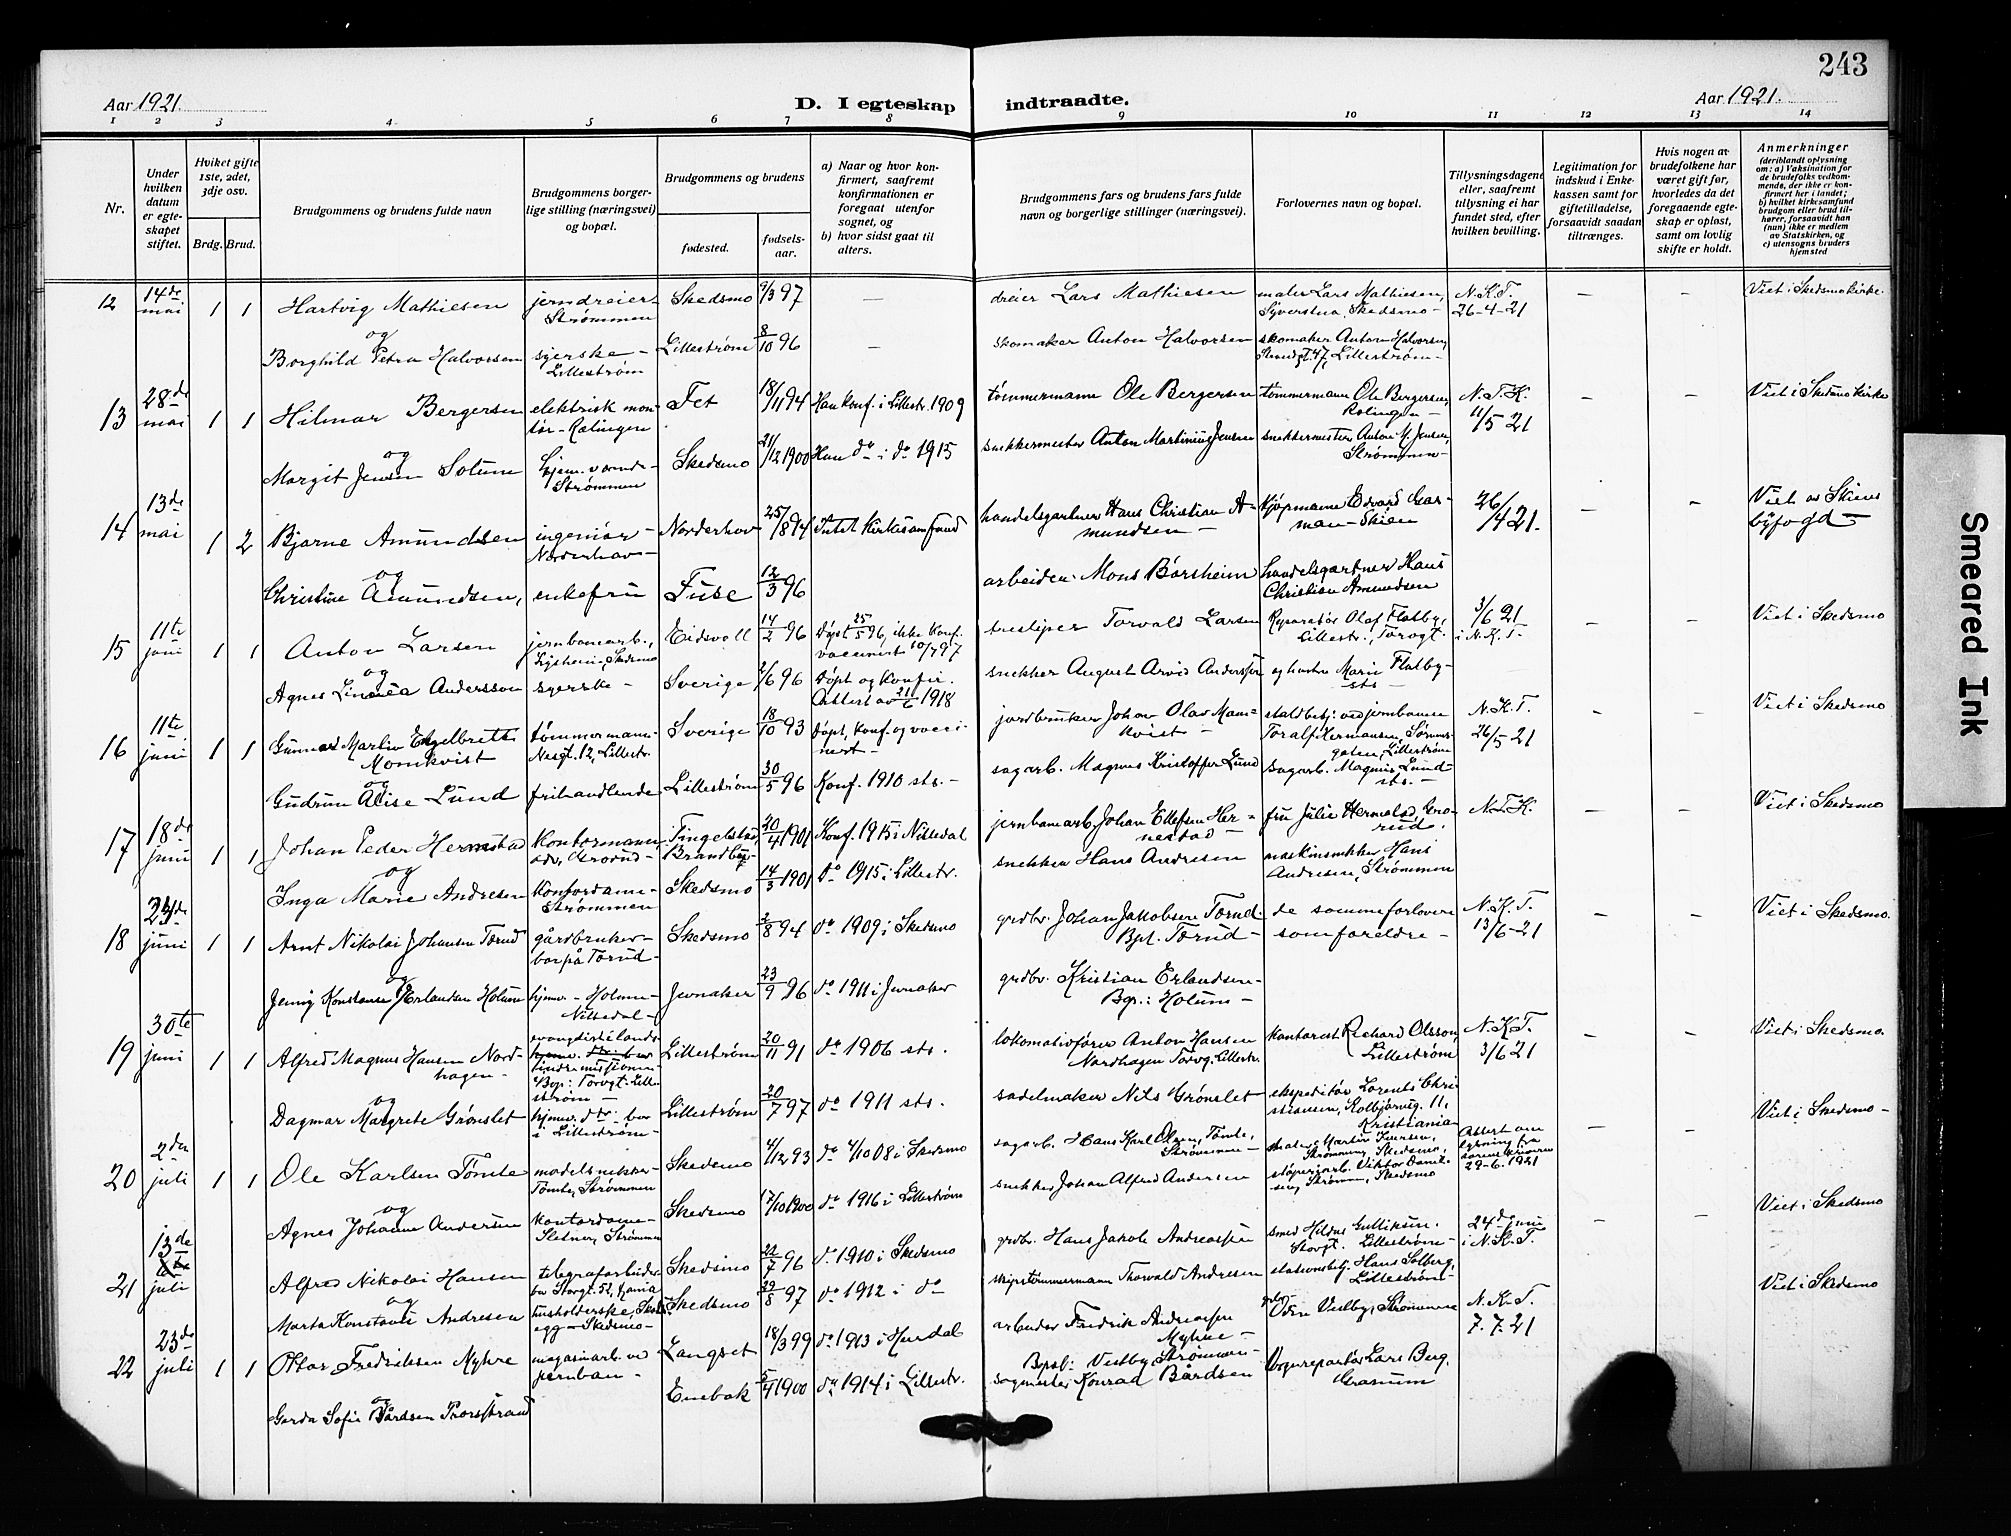 243
Aar 1921.
D. I egteskap indtraadte.
Aar 1921.
1 2 3 4 5 6 7 8 9 10 11 12 13 14
Nr.
Under hvilken datum er egteskapet stiftet.
Hviket gifte 1ste, 2det, 3dje osv.
Brdg. Brud.
Brudgommens og brudens fulde navn
Brudgommens borgerlige stilling (næringsvei) og bopæl.
Brudgommens og brudens
fødested.
fødselsaar.
a) Naar og hvor konfirmert, saafremt konfirmationen er foregaat utenfor sognet, og
b) hvor sidst gaat til alters.
Brudgommens fars og brudens fars fulde navn og borgerlige stillinger (næringsvei).
Forlovernes navn og bopæl.
Tillysningsdagene eller, saafremt tillysning ei har fundet sted, efter hvilken bevilling.
Legitimation for indskud i Enkekassen samt for giftetilladelse, forsaavidt saadan tiltrænges.
Hvis nogen av brudefolkene har været gift før, hvorledes da det foregaaende egteskap er opløst, samt om lovlig skifte er holdt.
Anmerkninger
(deriblandt oplysning om: a) Vaksination for de brudefolks vedkommende, der ikke er konfirmert her i landet; b) hvilket kirkesamfund brudgom eller brud tilhører, forsaavidt han (hun) ikke er medlem av Statskirken, og c) utensogns bruders hjemsted
12 14de mai 1 1 Hartvig Mathiesen jerndreier Strømmen Skedsmo 9/3 97 — dreier Lars Mathiesen maler Lars Mathiesen, Skedsmo - N.K.T. 26-4-21 — — Viet i Skedsmo kirke.
og
Borghild Petra Halvorsen syerske - Lillestrøm Lillestrøm 8/10 96 — skomaker Anton Halvorsen skomaker Anton Halvorsen, Lillestrøm -
13 28de mai 1 1 Hilmar Bergersen elektrisk montør - Rælingen Fet 18/11 94 Han konf. i Lillestr. 1909 tømmermann Ole Bergersen tømmermann Ole Bergersen, Rælingen - N.T.K. 11/5 21 — — Viet i Skedsmo kirke
og
Margit Jensen Solum hjemmeværende - Strømmen Skedsmo 21/12 1900 Hun do i do 1915 snekkermester Anton Martinius Jensen snekkermester Anton M. Jensen, Strømmen -
14 13de mai 1 2 Bjarne Amundsen ingeniør - Norderhov - Norderhov 25/8 94 Intet kirkesamfund handelsgartner Hans Christian Amundsen - kjøpmann Edvard Garman - Skien 26/4 21. — — Viet av Skiens byfogd -
og
Christine Amundsen, enkefru Fuse 12/3 96 arbeider Mons Børsheim handelsgartner Hans Christian Amundsen
15 11te juni 1 1 Anton Larsen jernbanearb., Skedsmo Eidsvoll 14/2 96 Døpt 25/5 96, ikke konf. vaccinert 10/7 97 Torvald Larsen Reparatør Olaf Flatby, Lillestr., Torvgt. 3/6 21 i N.K.T. — — Viet i Skedsmo
og
Agnes Linnéa Andersson syerske - Sverige 2/6 96 Døpt og konfir. Attest av 21/6 1918 snekker August Arvid Andersson og hustru Marie Flatby - sts -
16 11te juni 1 1 Gunnar Martin Engelbrett Momkvist tømmermann - Lillestr. Sverige 18/10 93 Døpt, konf. og vaccinert - jordbruker Johan Olav Mamkvist - staldbetj. ved jernbanen Toralf Hermansen, Lillestrøm N.K.T. 26/5-21 — — Viet i Skedsmo
og
Gudrun Alise Lund frihandlende Lillestrøm 30/5 96 Konf. 1910 sts. - sagarb. Magnus Kristoffer Lund sagarb. Magnus Lund sts. -
17 18de juni 1 1 Johan Peder Hernestad kontormann Grorud - Tingelstad, Brandbu 20/4 1901 Konf. 1915 i Nittedal jernbanearb. Johan Ellefsen Hernestad - fru Julie Hernestad, Grorud. N.T.K. — — Viet i Skedsmo
og
Inga Marie Andresen kontordame - Strømmen Skedsmo 14/3 1901 do 1915 i Lillestr. snekker Hans Andresen maskinsnekker Hans Andresen, Strømmen
18 24de juni 1 1 Arnt Nikolai Johansen Tærud gårdbruker - bor på Tærud - Skedsmo 2/8 94 do 1909 i Skedsmo grdbr. Johan Jakobsen Tærud. Bpl. Tærud - de samme forlovere som foreldre - N.K.T. 13/6-21 — — Viet i Skedsmo.
og
Jenny Konstanse Erlandsen Holum hjemv. - Holum - Nittedal - Jevnaker 23/9 96 do 1911 i Jevnaker grdbr. Kristian Erlandsen - Bop.: Holum -
19 30te juni 1 1 Alfred Magnus Hansen Nordhagen - Bop: Torvgt. Lillestrøm - Lillestrøm 20/11 91 do 1906 sts. lokomotivfører Anton Hansen Nordhagen Torvg. Lillestr. kontorist Richard Olsson, Lillestrøm N.K.T. 3/6 21 — — Viet i Skedsmo.
og
Dagmar Margrete Grønslet hjemv. dtr. bor i Lillestrøm - Lillestrøm 20/7 97 do 1911 sts. sadelmaker Nils Grønslet ekspeditør Lorents Christiansen, Kolbjørnsg. 11, Kristiania Viet i Skedsmo -
20 2den juli 1 1 Ole Karlsen Tomte modelsnekker - Tomte, Strømmen Skedsmo 4/12 93 do 4/10 08 i Skedsmo sagarb. Hans Karl Olsen, Tomte, Strømmen - Martin Iversen, Strømmen, Skedsmo, støperiarb. Viktor Danielsen, Strømmen, Skedsmo Attest om lysning fra sorenskriveren 29-6.1921 — —
og
Agnes Johanne Andersen kontordame - Sletner, Strømmen Skedsmo 17/10 1900 do 1916 i Lillestrøm snekker Johan Alfred Andersen Viet i Skedsmo
21 13de juli Alfred Nikolai Hansen telegrafarbeider Storgt. 52 Skedsmo 22/7 96 do 1910 i Skedsmo grdbr. Hans Jakob Andreassen smed Hildus Gulliksen. Storgt. Lillestrøm - 24de juni i N.K.T. — —
og
Marta Konstanse Andresen husholderske, Skedsmo - Skedsmo 29/8 97 do 1912 i do skipstømmermann Thorvald Andresen stationsbetj. Hans Solberg, Lillestrøm - Viet i Skedsmo
22 23de juli 1 1 Ottar Fredriksen Myhre magasinarb. ved jernban - Langset 18/3 99 do 1913 i Hurdal arbeider Fredrik Andreassen Myhre - Bopl: Vestby, Strømmen - Odin Vestby, Strømmen N.K.T. 7.7.21
og
Gerda Sofie Bårdsen Enebak 5/4 1900 do 1914 i Lillestr. sagmester Konrad Bårdsen Vognreparatør Lars Berg, Grasrum
Smeared Ink